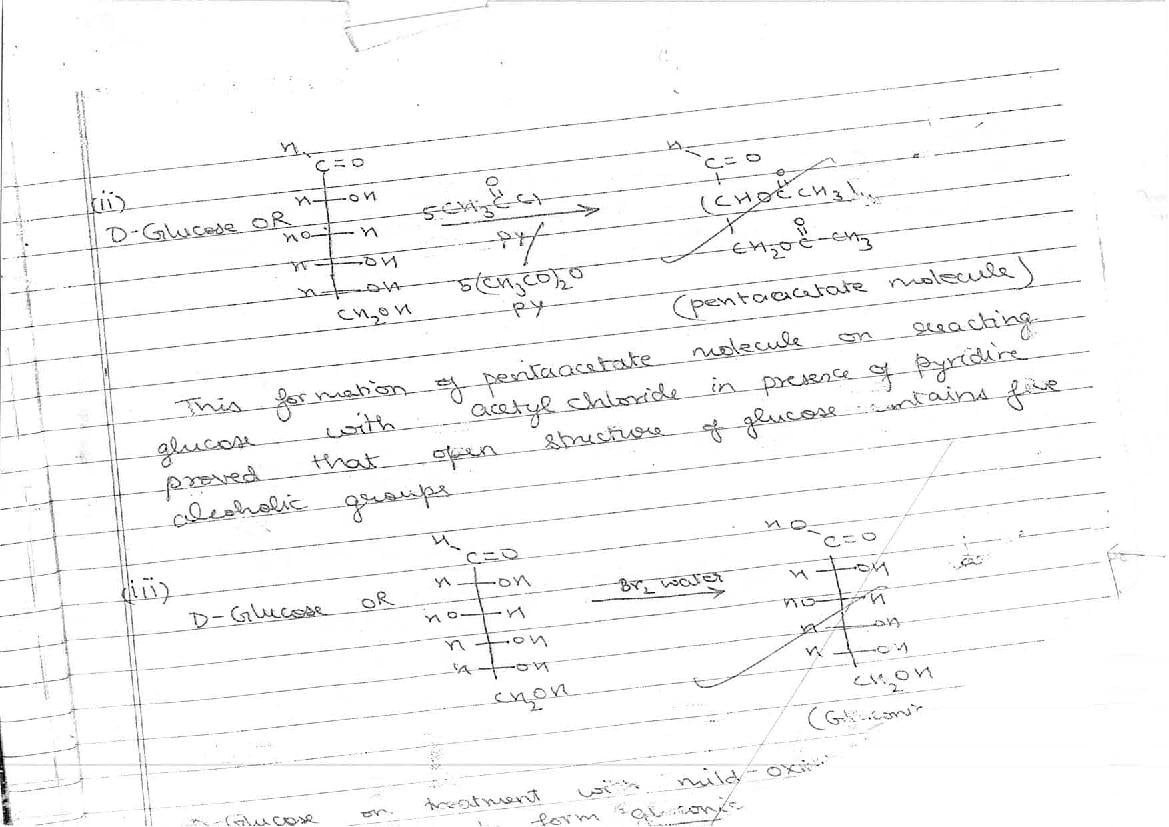 H
C=O
(ii) H OH
D-Glucose OR HO H
H OH
H OH
CH2OH
O
5CH3CCl
py/
5(CH3CO)2O
py
H
C=O
O
(CHOCCH3)
O
CH2OC-CH3
(pentaacetate molecule)
This formation of pentaacetate molecule on reacting
glucose with acetyl chloride in presence of pyridine
proved that open structure of glucose contains five
alcoholic groups
H
C=O
(iii) H OH
D-Glucose OR HO H
H OH
H OH
CH2OH
Br2 water
HO
C=O
H OH
HO H
H OH
H OH
CH2OH
(Gluconic
D-Glucose on treatment with mild oxi
form gluconic